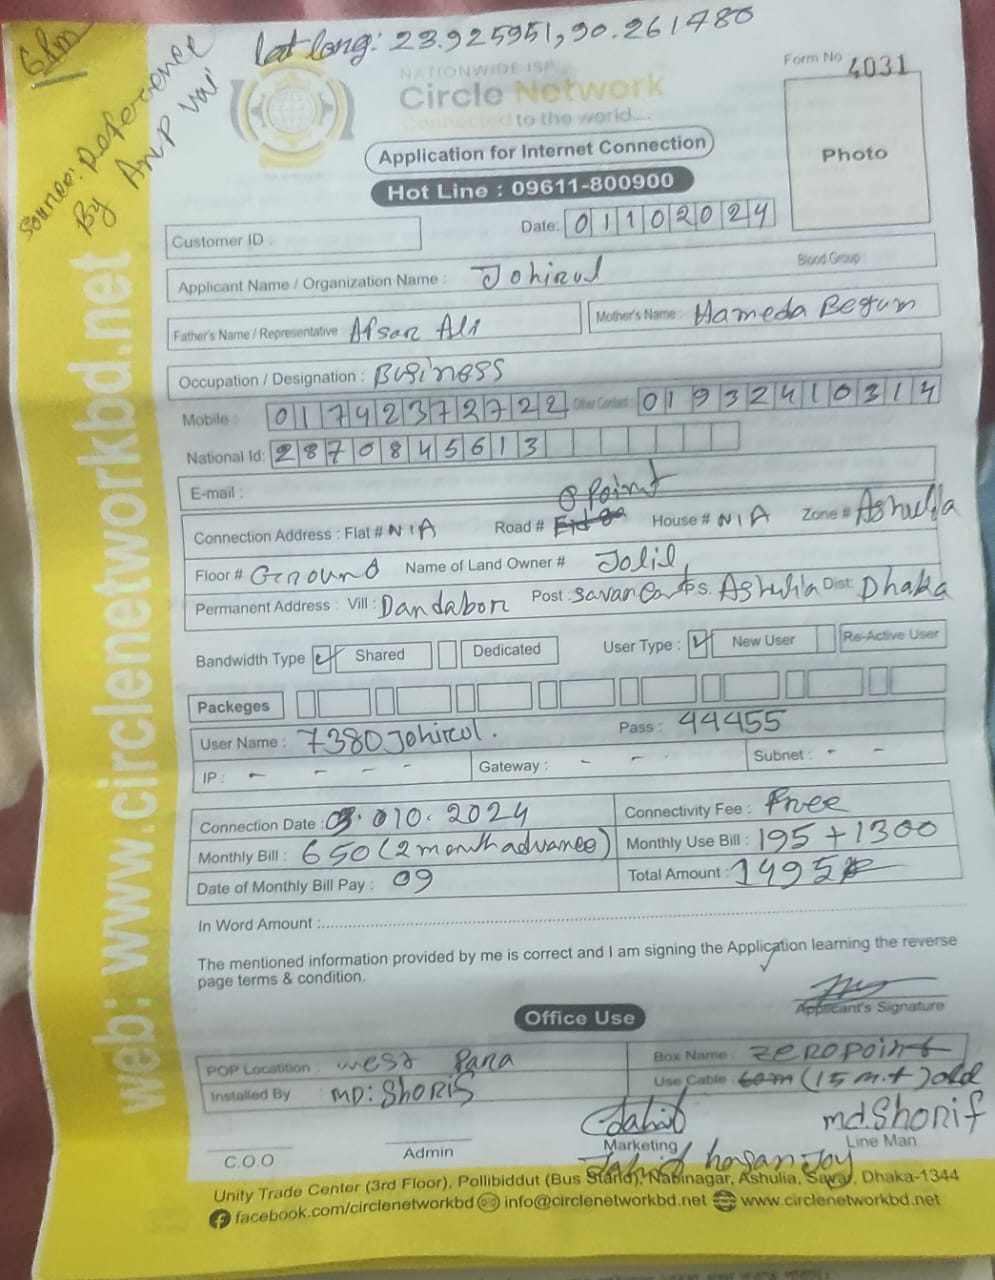 6Pm
lat long: 23.925951, 90.261480
Source: Reference
By Anp Vai
NATIONWIDE ISP
Circle Network
Connected to the world....
Form No 4031
Application for Internet Connection
Photo
Hot Line : 09611-800900
Customer ID :
Date: 01102024
Applicant Name / Organization Name : Johirul
Blood Group :
Father's Name / Representative Afsar Ali
Mother's Name : Hameda Begum
Occupation / Designation : Business
Mobile : 01742372722 Other Contact 01932410314
National Id: 2870845613
E-mail :
Connection Address : Flat # N/A Road # 0 Point House # N/A Zone # Ashulia
Floor # Ground Name of Land Owner # Jolil
Permanent Address : Vill : Dandabor Post : Savar Can P.s. Ashulia Dist: Dhaka
Bandwidth Type Shared Dedicated User Type : New User Re-Active User
Packeges
User Name : 7380Johirul. Pass : 44455
IP : - - - - Gateway : - - - Subnet : - -
Connection Date : 03.010.2024 Connectivity Fee : Free
Monthly Bill : 650 (2 month advance) Monthly Use Bill : 195 + 1300
Date of Monthly Bill Pay : 09 Total Amount : 1495
In Word Amount :
The mentioned information provided by me is correct and I am signing the Application learning the reverse
page terms & condition.
Applicant's Signature
Office Use
POP Locatition : west Para Box Name : ZERO POINT
Installed By : MD: SHORIS Use Cable : 60m (15 m.t) old
md.Shorif
C.O.O Admin Marketing Line Man
Jahid hasan Joy
Unity Trade Center (3rd Floor), Pollibiddut (Bus Stand), Nabinagar, Ashulia, Savar, Dhaka-1344
facebook.com/circlenetworkbd info@circlenetworkbd.net www.circlenetworkbd.net
web: www.circlenetworkbd.net